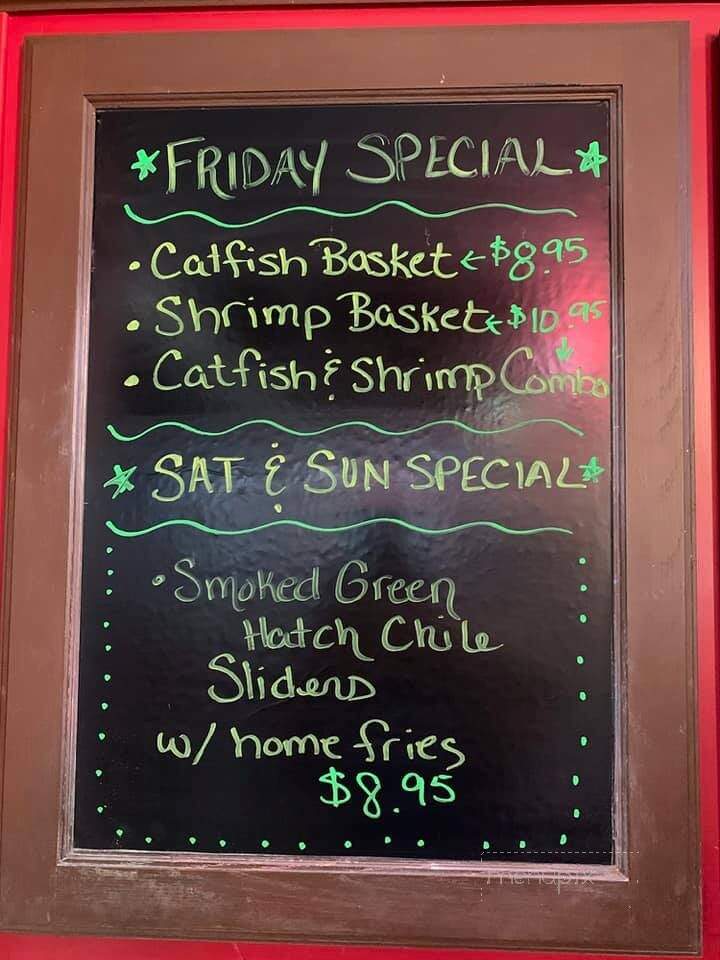 FRIDAY SPECIAL
• Catfish Basket ← $8.95
• Shrimp Basket ← $10.95
• Catfish & Shrimp Combo
SAT & SUN SPECIAL
• Smoked Green
Hatch Chile
Sliders
w/ home fries
$8.95
menupix